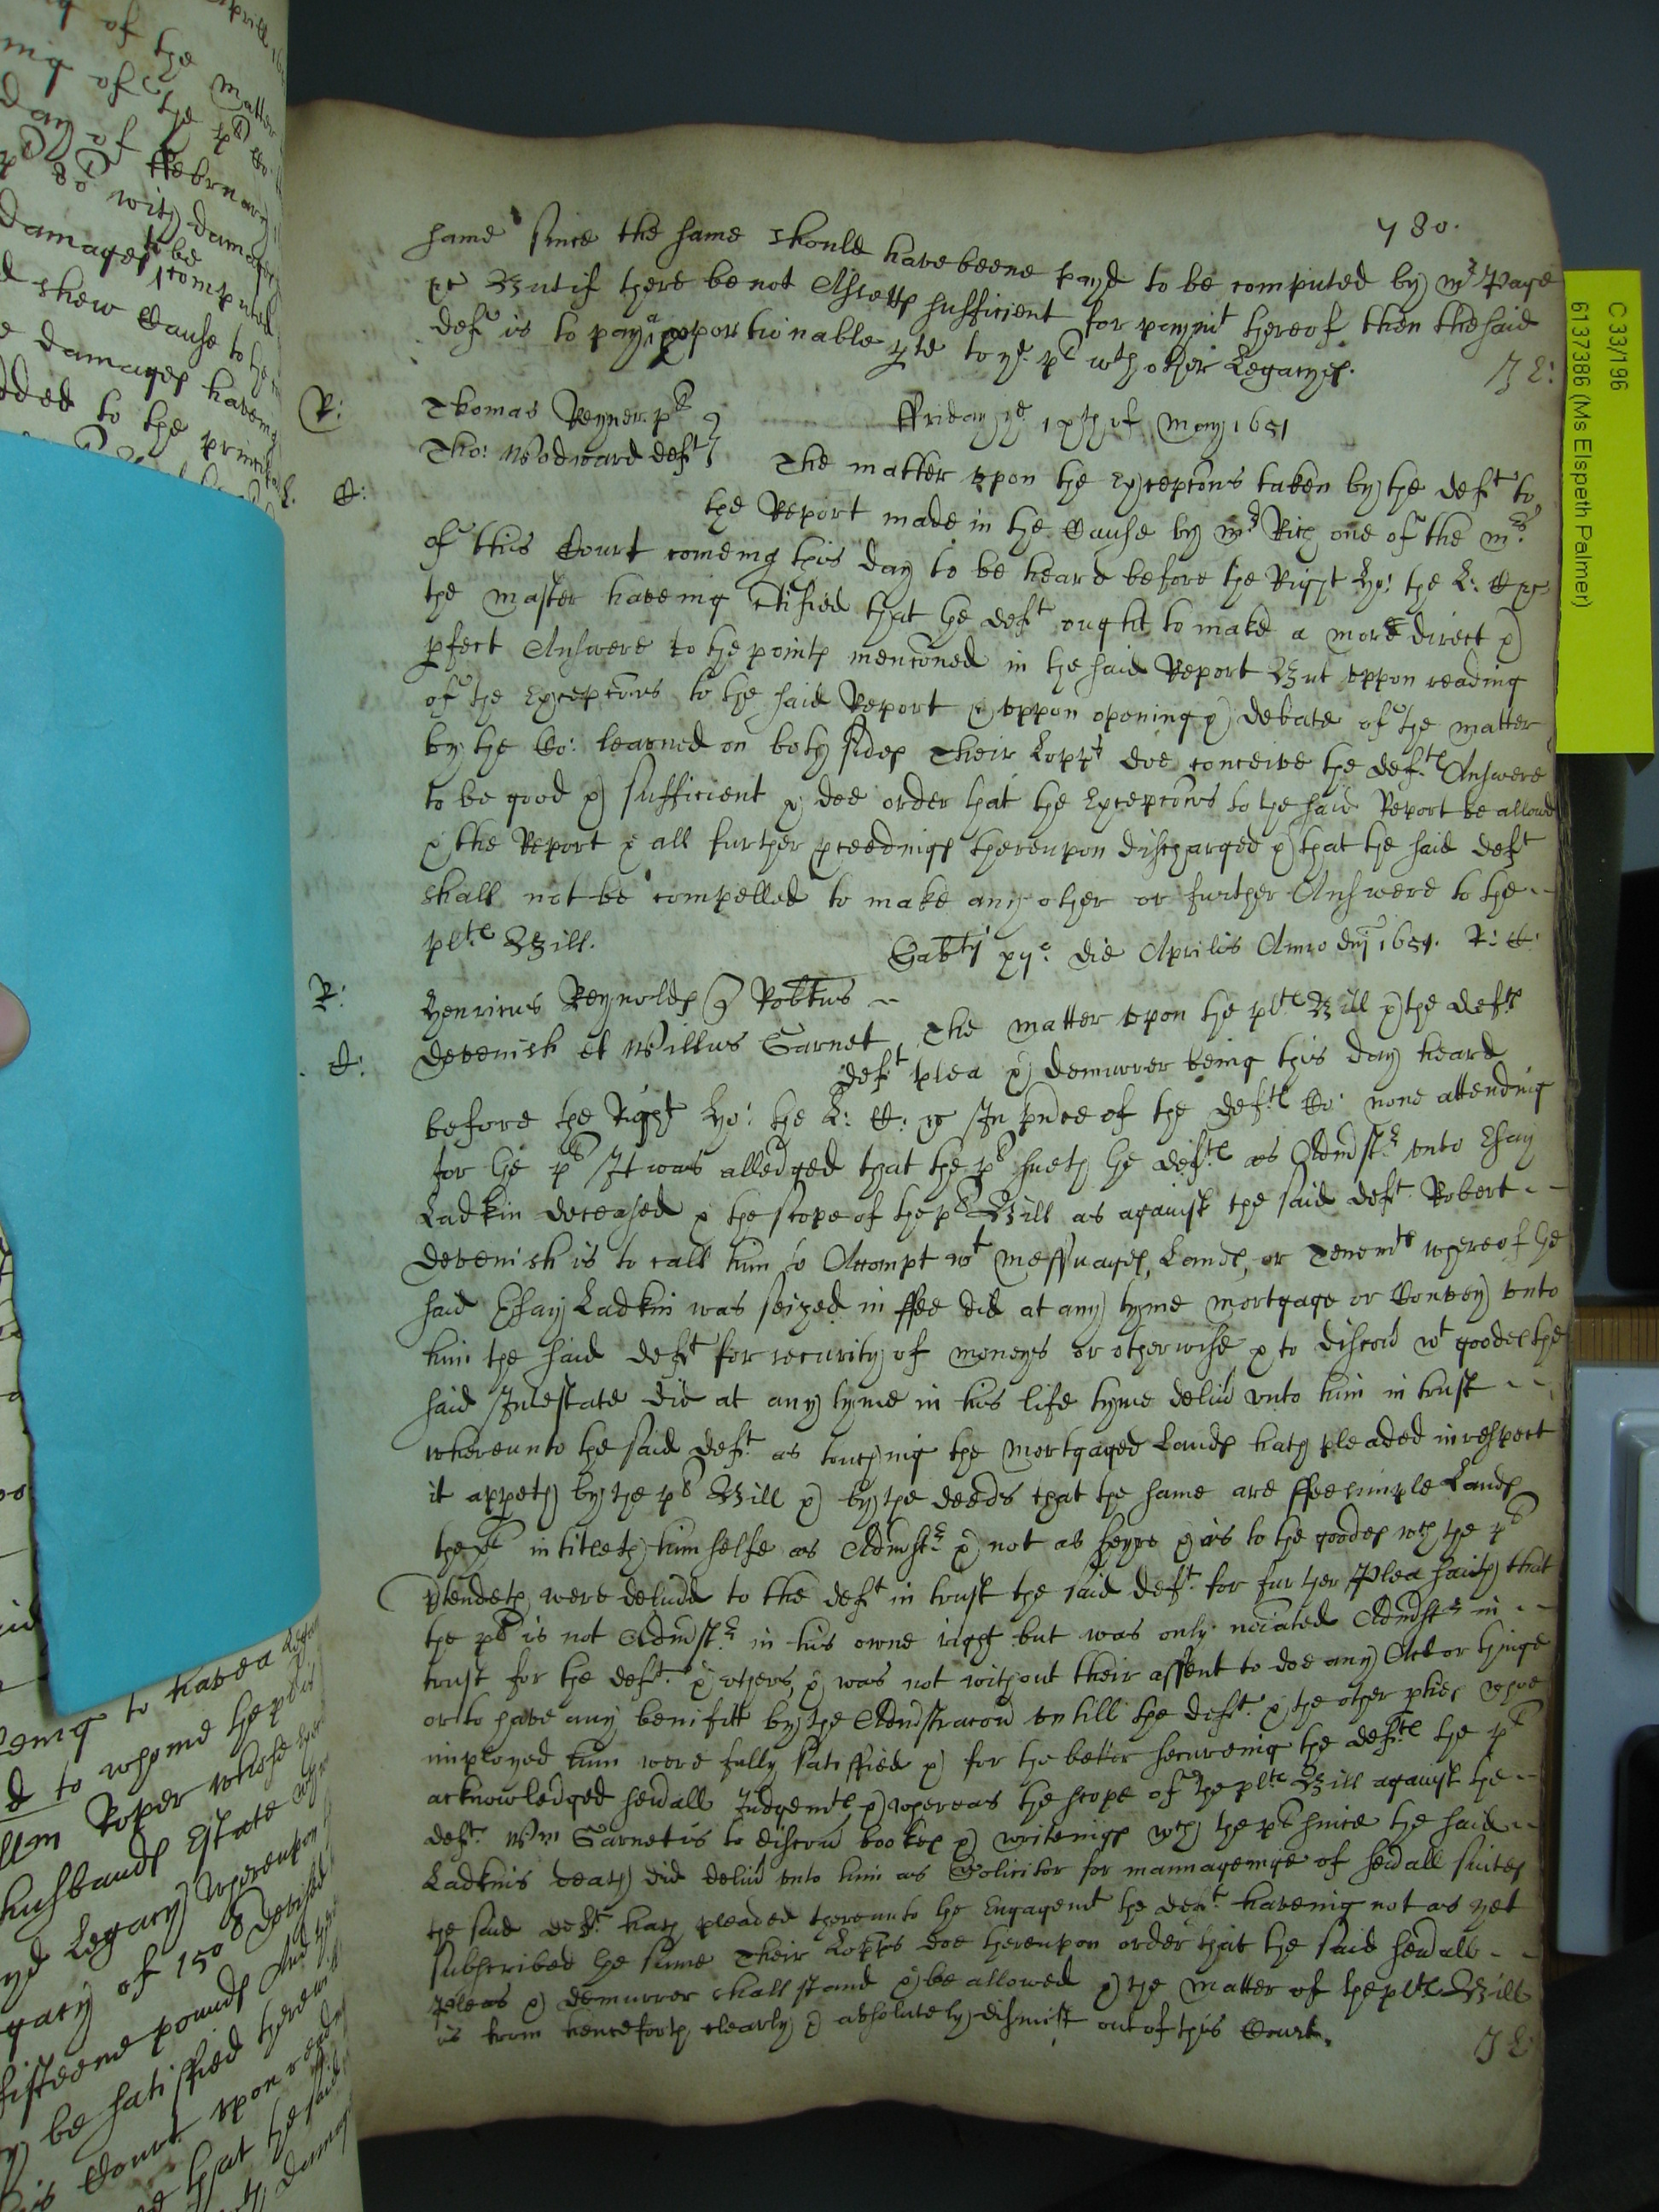 780.
same since the same should have beene payd to be computed by Mr Page
&c But if there be not Assetts sufficient for paymt thereof then the said
deft is to pay a pportionable pte to ye plt wth other Legacyes.
J E:
R: Thomas Reyner plt
Tho: Woodward deft
Friday ye ixth of May 1651
C: The matter upon the Excepcons taken by the deft to
the Report made in the Cause by Mr Rich one of the Mrs
of this Court comeing this day to be heard before the Right Ho: the L: C &c
the master haveing ctified that the deft ought to make a more direct &
pfect Answere to the points mencōned in the said Report But uppon reading
of the Excepcons to the said Report & uppon opening & debate of the matter
by the Co: learned on both sides Their Lopps doe conceive the defts Answere
to be good & sufficient & doe order that the Excepcons to the said Report be allowed
& the Report & all further pceedings thereupon discharged & that the said deft
shall not be compelled to make any other or further Answere to the
plts Bill.
Sabti xijo die Aprilis Anno dni 1651. R: C:
R: Henricus Reynolds Robtus
C: Devenish et Willus Garnet The matter upon the plts Bill & the defts
deft plea & demurrer being this day heard
before the Right Ho: the L: C: &c In pnce of the defts Co: none attending
for the plt It was alledged that the plt sueth the defts as Admstr unto Esay
Ladkin deceased & the scope of the plt Bill as against the said deft Robert
Devenish is to call him to Accompt wt messuages, Lands, or Tenemts whereof the
said Esay Ladkin was seized in ffee did at any tyme mortgage or Convey unto
him the said deft for security of moneys or otherwise & to discov wt goodes the
said Intestate did at any tyme in his life tyme delivd unto him in trust
whereunto the said deft as touching the mortgaged Lands hath pleaded in respect
it appeth by the plt Bill & by the deeds that the same are ffee simple Lands
the plt intitleth himselfe as Admstr & not as heyre & as to the goodes wch the plt
ptendeth were delivd to the deft in trust the said deft for further Plea saith that
the plt is not Admstr in his owne right but was only noiated Admstr in
trust for the deft & others & was not without their assent to doe any Act or thinge
or to have any benifitt by the Admstracon untill the deft & the other pties whoe
imployed him were fully satisfied & for the better secureing the defts the plt
acknowledged sevall Judgemts & whereas the scope of the plts Bill against the
deft Wm Garnet is to discov bookes & writeings wch the plt since the said
Ladkins death did deliv unto him as Solicitor for mannageinge of sevall suites
the said deft hath pleaded thereunto the Engagemt the deft haveing not as yet
subscribed the same Their Lopps doe thereupon order that the said sevall
pleas & demurrer shall stand & be allowed & the matter of the plts Bill
is from henceforth clearly & absolutely dismist out of this Court.
J E
C 33/196
6137386 (Ms Elspeth Palmer)
the matter
ffebruary
with damages
damages be computed
shew Cause to the
damages haveing
added to the princi
to have a
to whome the
Roper whose
husbands Estate
Legacy whereupon
of 150 devised
fifteene pounds And
be satisfied
Court upon
that the said
damag